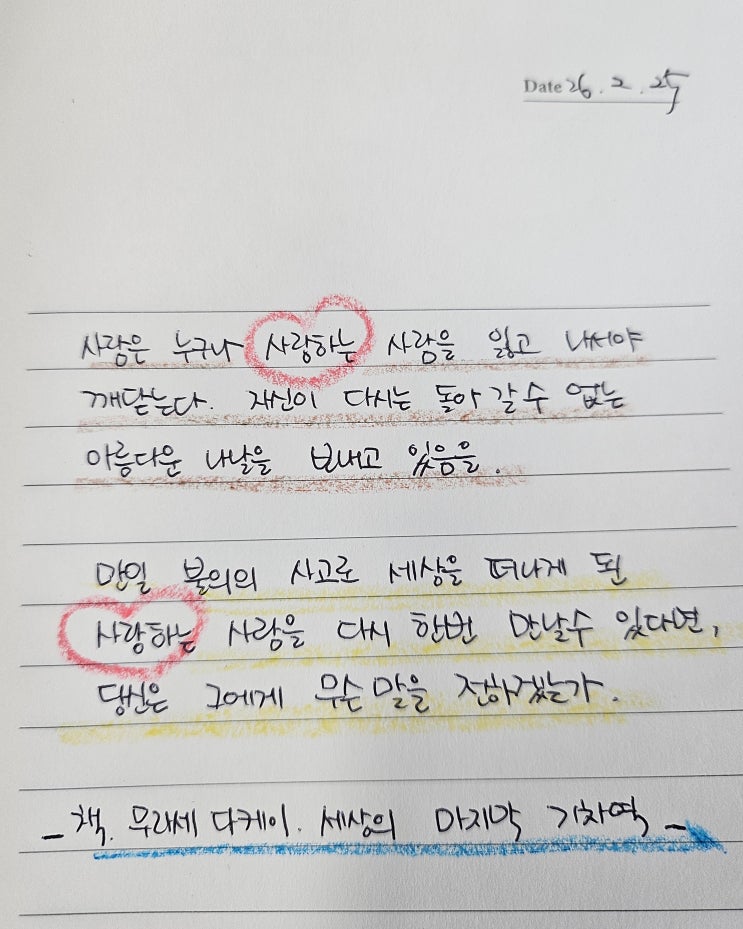 Date 26. 2. 25
사람은 누구나 사랑하는 사람을 잃고 나서야
깨닫는다. 자신이 다시는 돌아 갈 수 없는
아름다운 나날을 보내고 있음을.
만일 불의의 사고로 세상을 떠나게 된
사랑하는 사람을 다시 한번 만날수 있다면,
당신은 그에게 무슨 말을 전하겠는가.
- 책. 무라세 다케시. 세상의 마지막 기차역 -